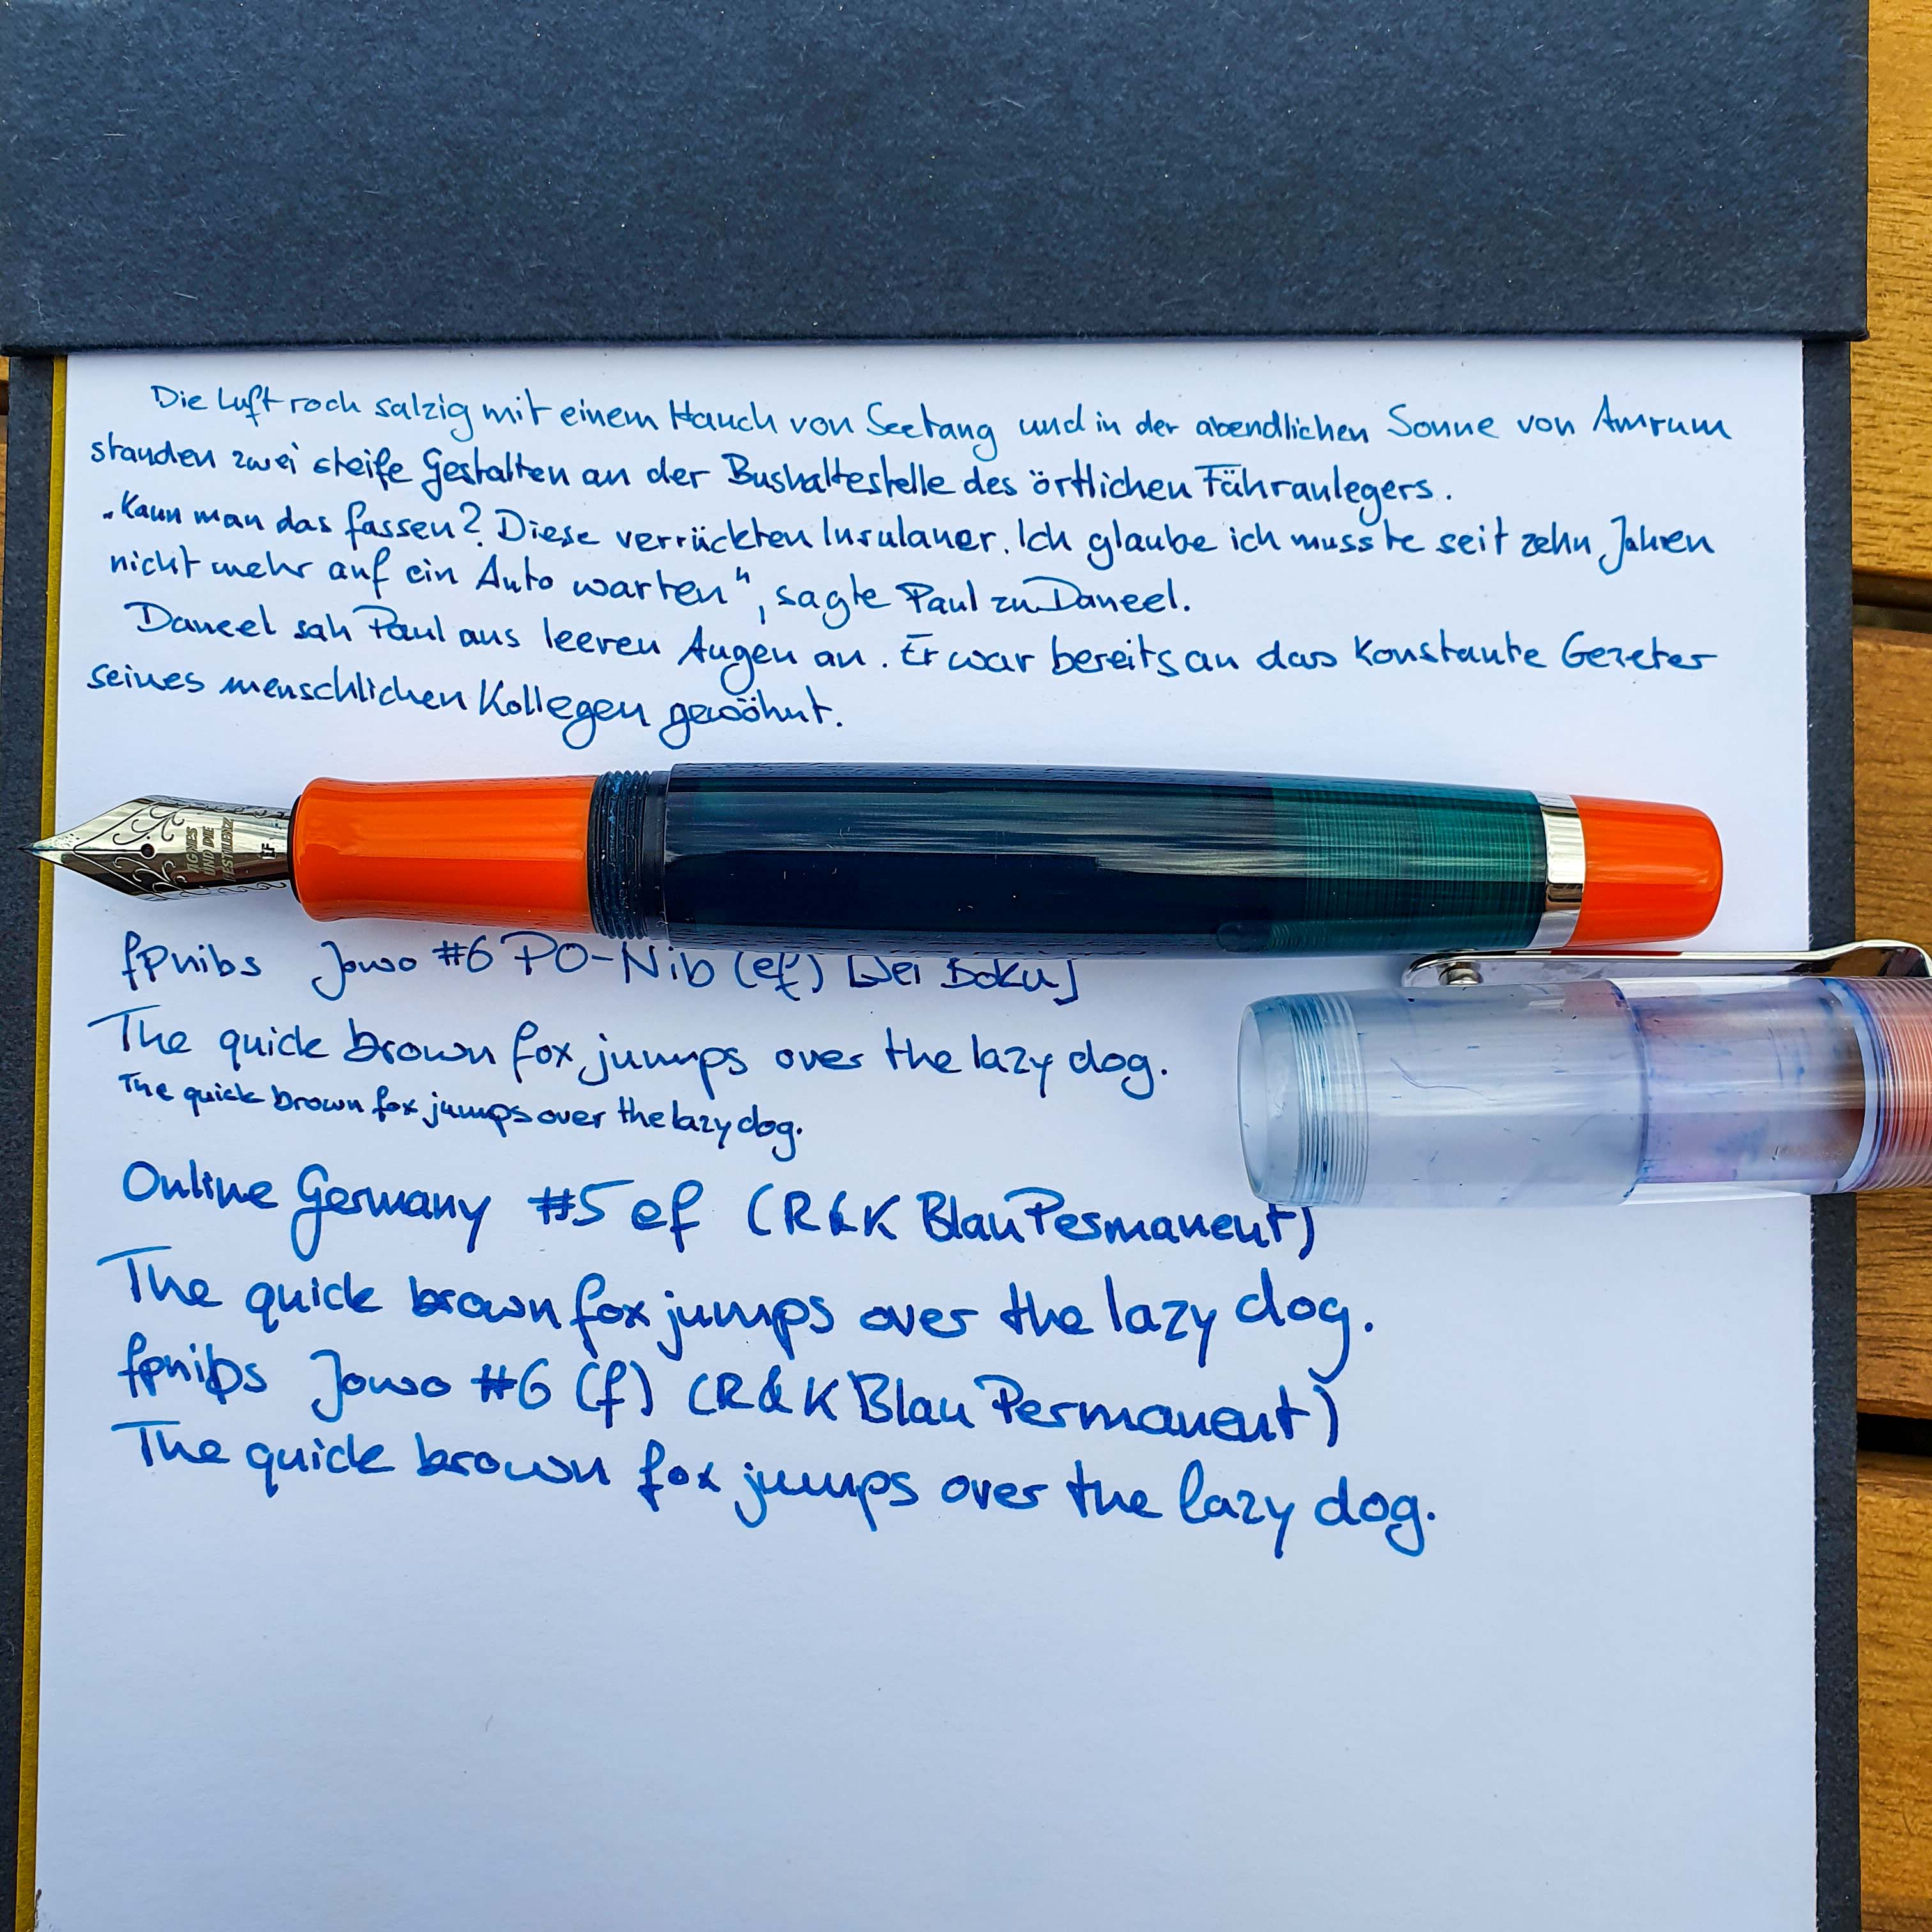 Die Luft roch salzig mit einem Hauch von Seetang und in der abendlichen Sonne von Amrum
standen zwei steife Gestalten an der Bushaltestelle des örtlichen Fähranlegers.
„Kann man das fassen? Diese verrückten Insulaner. Ich glaube ich musste seit zehn Jahren
nicht mehr auf ein Auto warten“, sagte Paul zu Daneel.
Daneel sah Paul aus leeren Augen an. Er war bereits an das Konstante Gezeter
seines menschlichen Kollegen gewöhnt.
AGNES
UND DIE
PESTILENZ
EF
fpnibs Jowo #6 PO-Nib (ef) [Wei Boku]
The quick brown fox jumps over the lazy dog.
The quick brown fox jumps over the lazy dog.
Online Germany #5 ef (R&K Blau Permanent)
The quick brown fox jumps over the lazy dog.
fpnibs Jowo #6 (f) (R&K Blau Permanent)
The quick brown fox jumps over the lazy dog.